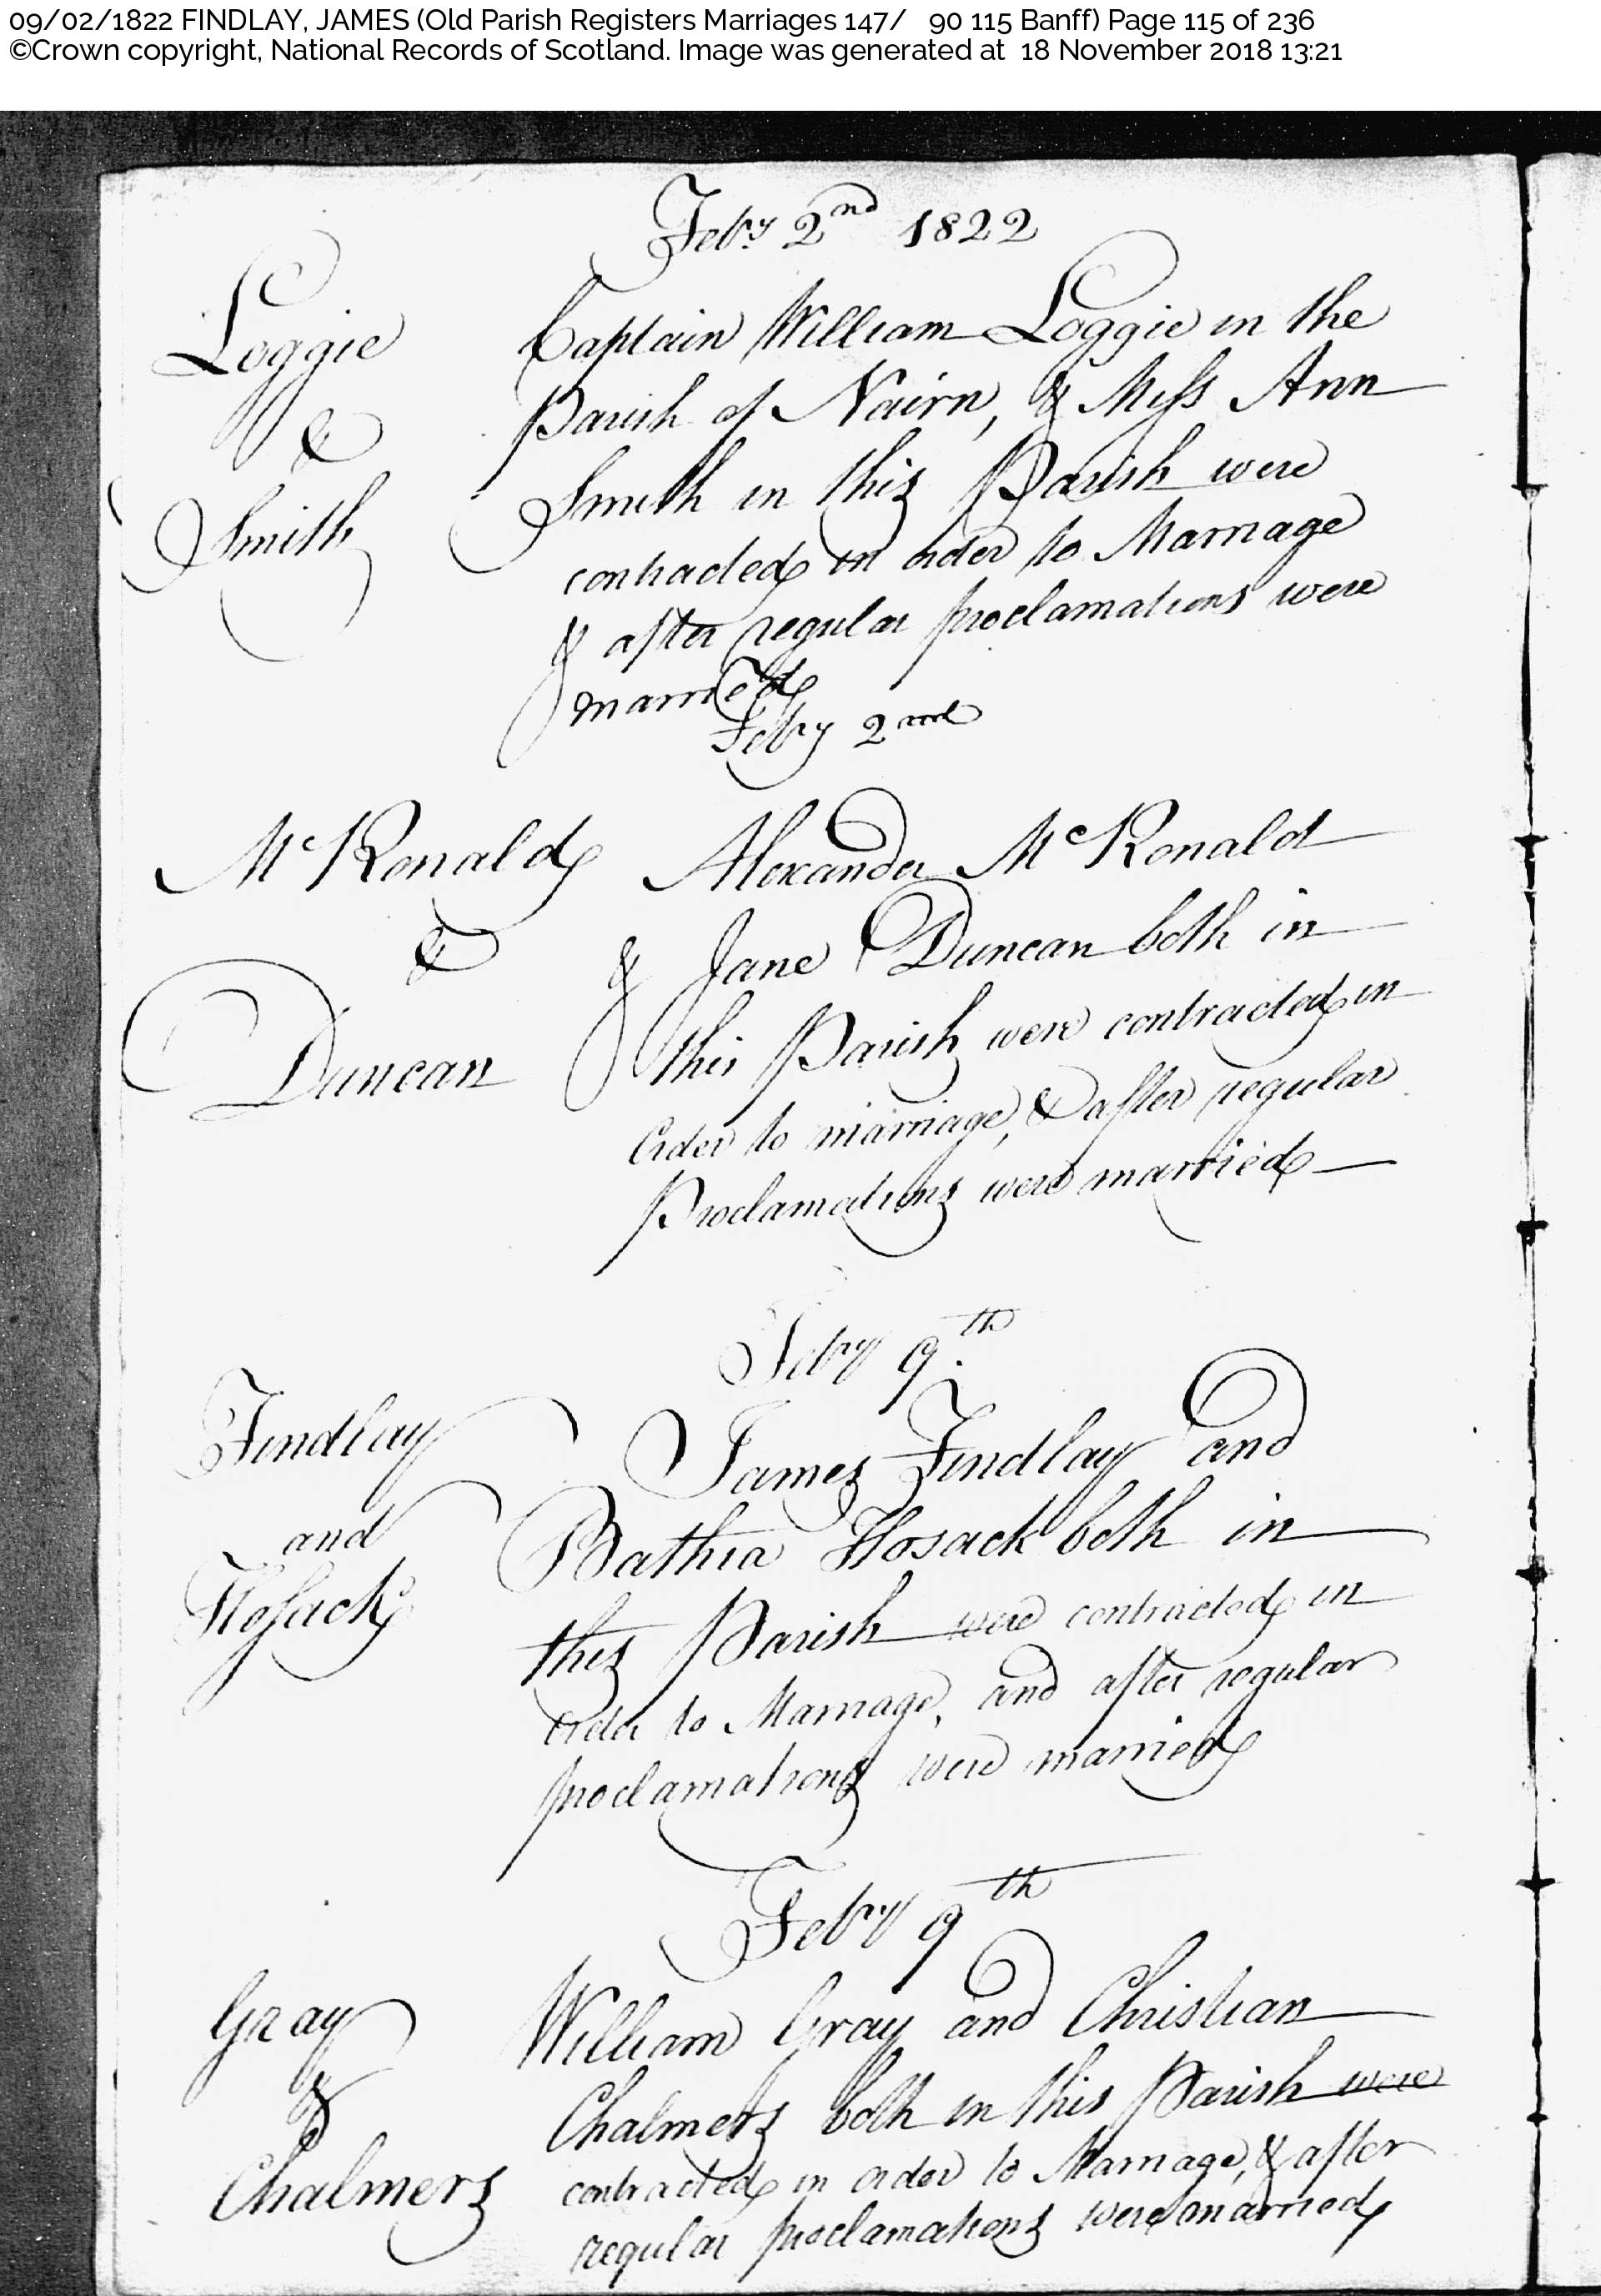 09/02/1822 FINDLAY, JAMES (Old Parish Registers Marriages 147/ 90 115 Banff) Page 115 of 236
©Crown copyright, National Records of Scotland. Image was generated at 18 November 2018 13:21
Febry 2nd 1822
Loggie
&
Smith
Captain William Loggie in the
Parish of Nairn, & Miss Ann
Smith in this Parish were
contracted in order to Marriage
& after regular proclamations were
married
Feby 2nd
McRonald
&
Duncan
Alexander McRonald
& Jane Duncan both in
this Parish were contracted in
Order to marriage, & after regular
Proclamations were married
Febry 9th
Findlay
and
Hosack
James Findlay and
Bathia Hosack both in
this Parish were contracted in
order to Marriage, and after regular
proclamations were married
Febry 9th
Gray
&
Chalmers
William Gray and Christian
Chalmers both in this Parish were
contracted in order to Marriage, & after
regular proclamations were married